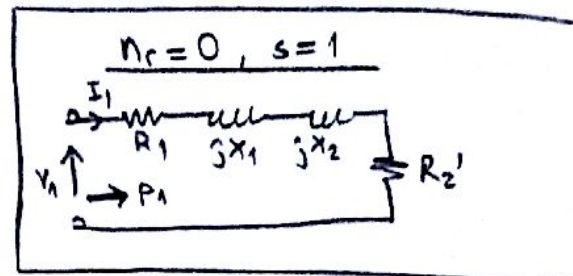 nr = 0 , s = 1
I1
R1 jX1 jX2
R2'
V1
P1